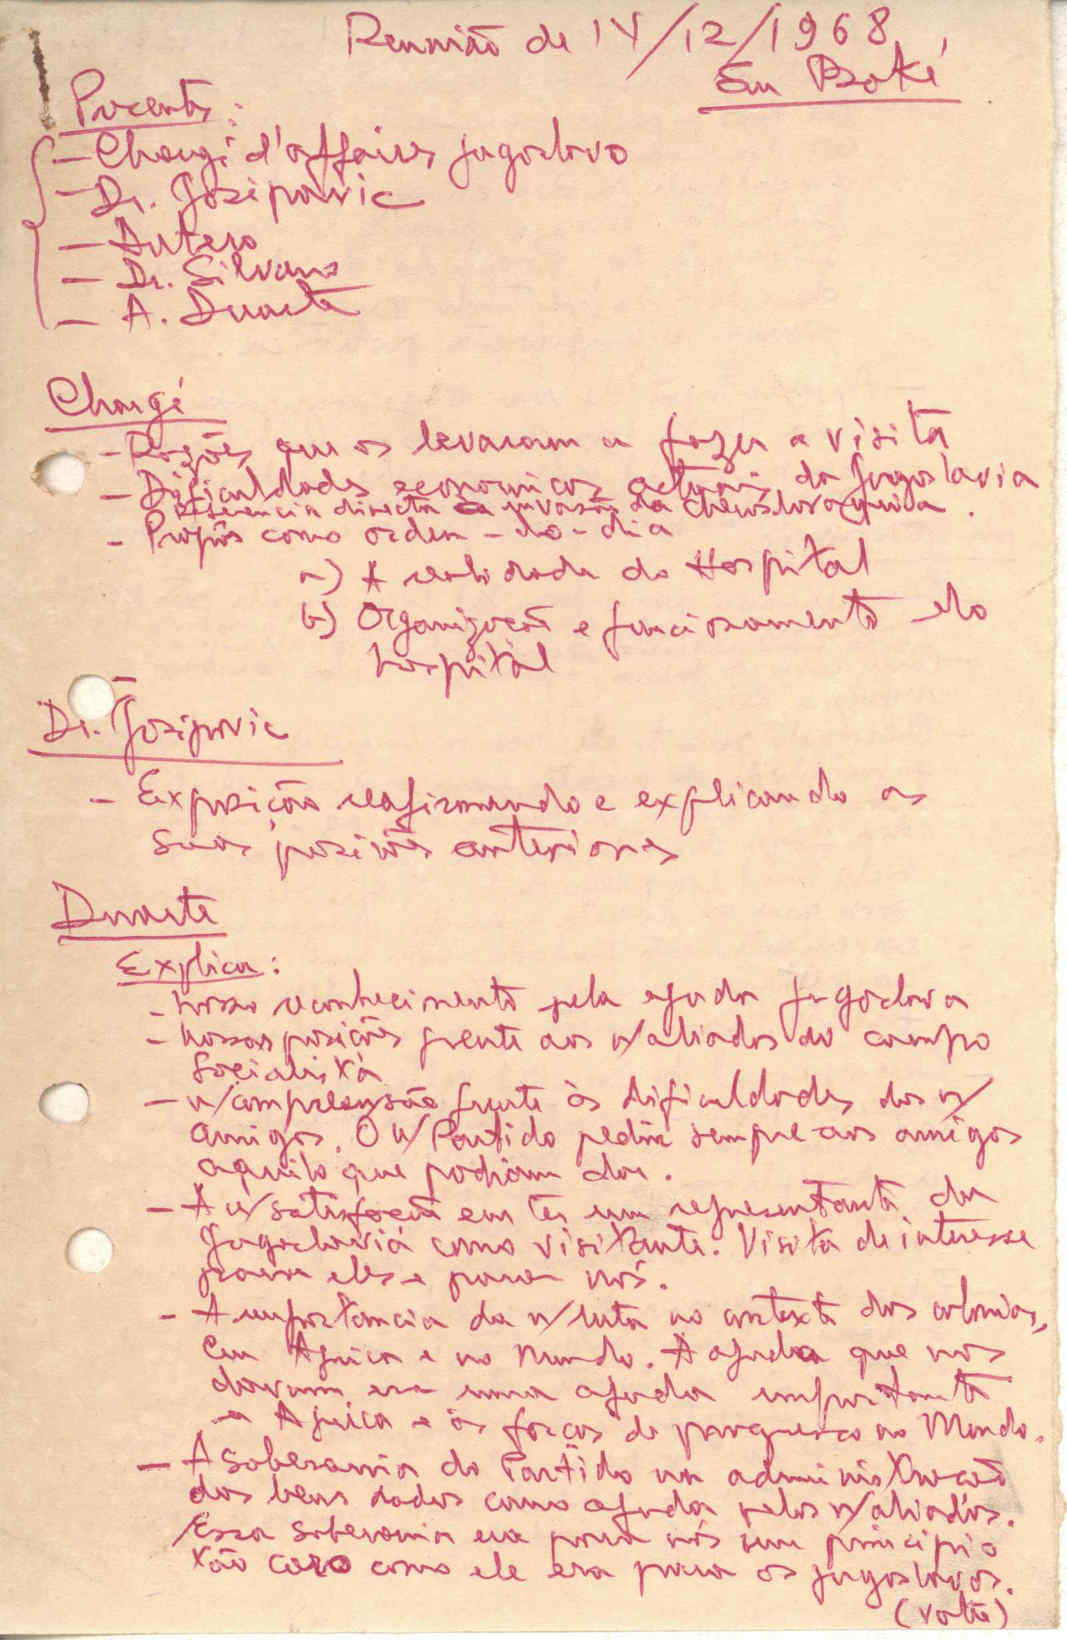 Reunião de 14/12/1968,
Em Boké
Presentes:
- Chargé d'affaires jugoslavo
- Dr. Jozipovic
- Antero
- Dr. Silvano
- A. Duarte
Chargé
- Razões que os levaram a fazer a visita
- Dificuldades económicas actuais da Jugoslavia
Referencia directa a invasão da Checoslovaquia.
- Propôs como ordem-do-dia
a) A realidade do Hospital
b) Organização e funcionamento do
hospital
Dr. Jozipovic
- Exposição reafirmando e explicando as
suas posições anteriores
Duarte
Explica:
- nosso reconhecimento pela ajuda jugoslava
- nossas posições frente aos n/aliados do campo
socialista
- n/compreensão frente às dificuldades dos n/
amigos. O n/Partido pedia sempre aos amigos
aquilo que podiam dar.
- A n/satisfação em ter um representante da
Jugoslavia como visitante. Visita de interesse
para eles e para nós.
- A importancia da n/luta no contexto das colonias,
em Africa e no Mundo. A ajuda que nos
davam era uma ajuda importante
a Africa e às forças de progresso no Mundo.
- A soberania do Partido na administração
dos bens dados como ajuda pelos n/aliados.
Essa soberania era para nós um principio
tão caro como ele era para os jugoslavos.
(volte)